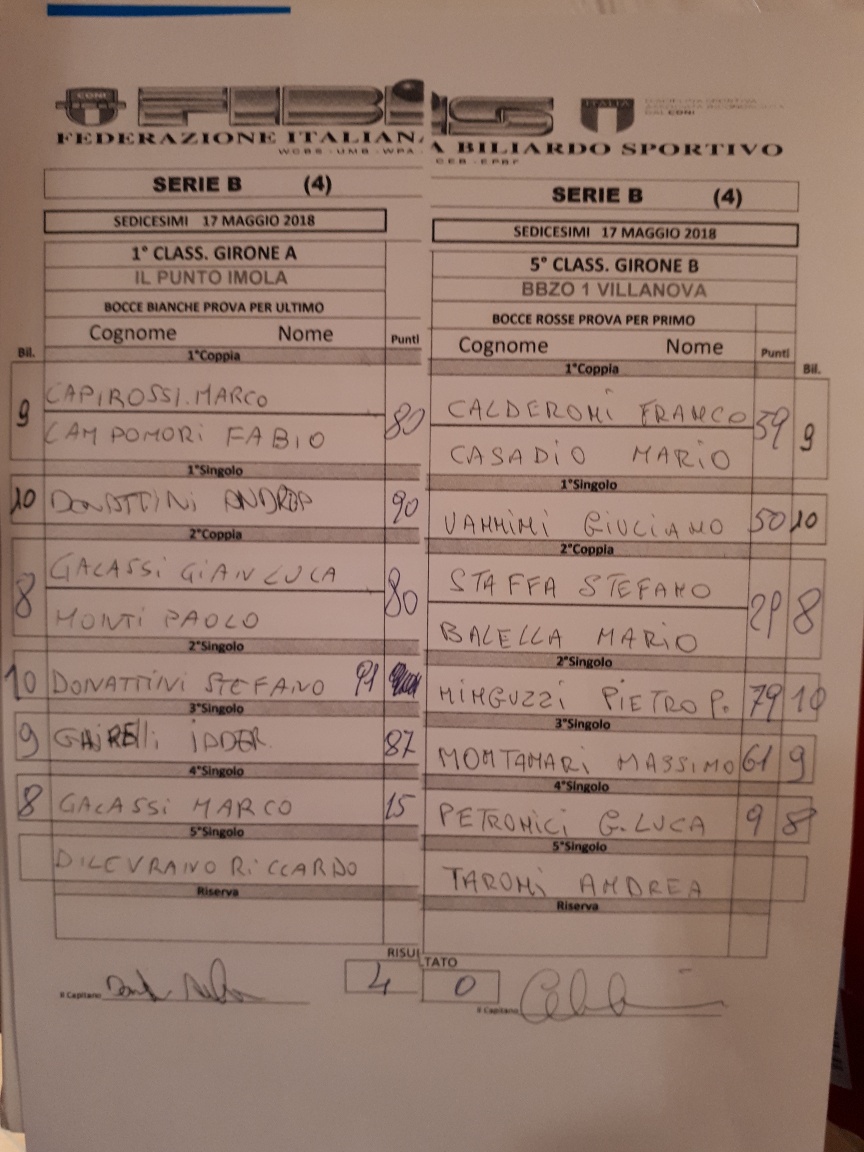 CONI
FIBiS
ITALIA
FEDERAZIONE ITALIANA BILIARDO SPORTIVO
WCBS - UMB - WPA - CEB - EPBF
SERIE B (4)
SEDICESIMI 17 MAGGIO 2018
1° CLASS. GIRONE A
IL PUNTO IMOLA
BOCCE BIANCHE PROVA PER ULTIMO
Cognome Nome Punti
Bil.
1°Coppia
9 CAPIROSSI. MARCO 80
CAMPOMORI FABIO
1°Singolo
10 DONATTINI 90
2°Coppia
8 GALASSI GIANLUCA 80
MONTI PAOLO
2°Singolo
10 DONATTINI STEFANO 91
3°Singolo
9 IDDER 87
4°Singolo
8 GALASSI MARCO 15
5°Singolo
DILEVRANO RICCARDO
Riserva
RISULTATO
4
Il Capitano
SERIE B (4)
SEDICESIMI 17 MAGGIO 2018
5° CLASS. GIRONE B
BBZO 1 VILLANOVA
BOCCE ROSSE PROVA PER PRIMO
Cognome Nome Punti Bil.
1°Coppia
CALDERONI FRANCO 59 9
CASADIO MARIO
1°Singolo
VANNINI GIULIANO 50 10
2°Coppia
STAFFA STEFANO 8
BALELLA MARIO
2°Singolo
MINGUZZI PIETRO P. 79 10
3°Singolo
MONTANARI MASSIMO 61 9
4°Singolo
PETRONICI G. LUCA 9 8
5°Singolo
TARONI ANDREA
Riserva
0
Il Capitano